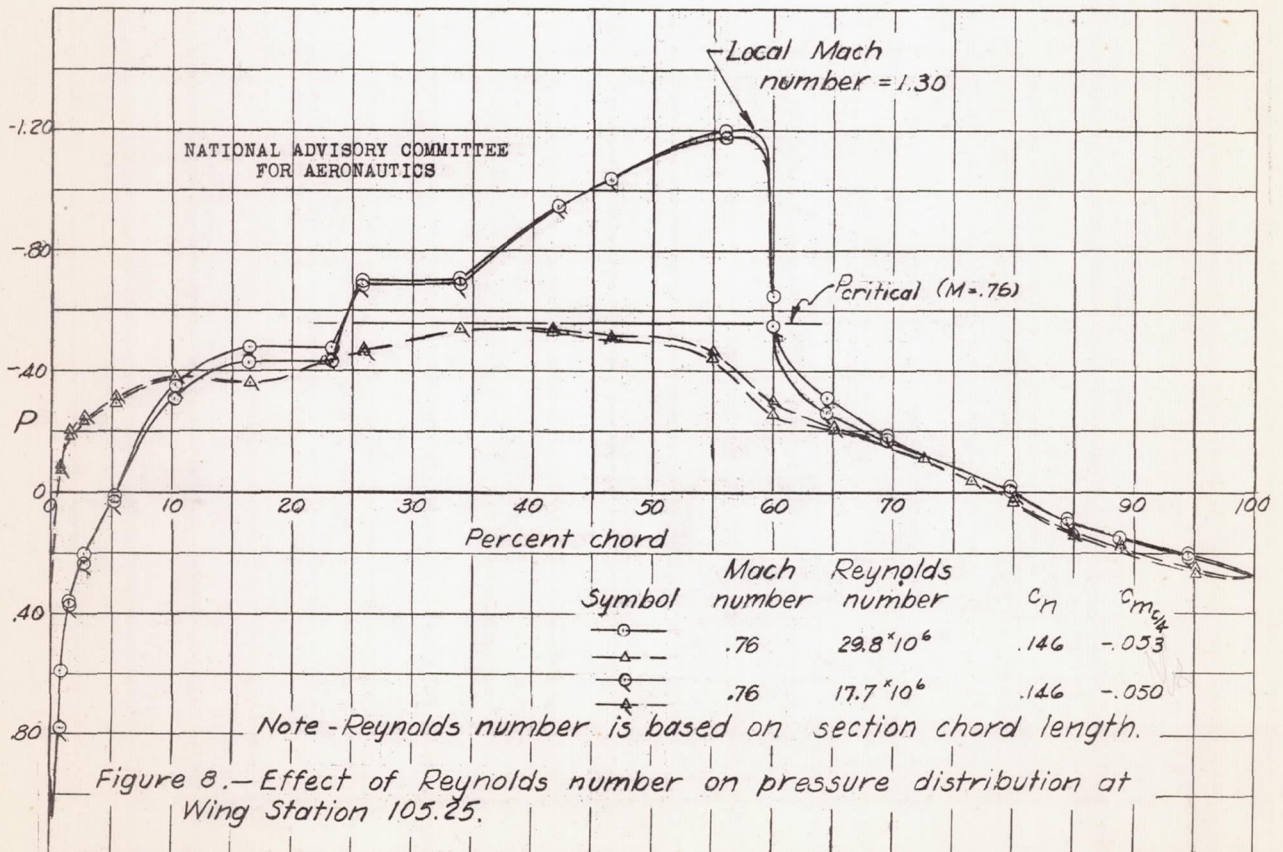 Local Mach
number = 1.30
-1.20
NATIONAL ADVISORY COMMITTEE
FOR AERONAUTICS
-.80
Pcritical (M=.76)
-.40
P
0
0 10 20 30 40 50 60 70 80 90 100
Percent chord
.40
Symbol Mach number Reynolds number cn cmc/4
.76 29.8×10⁶ .146 -.053
.76 17.7×10⁶ .146 -.050
.80
Note - Reynolds number is based on section chord length.
Figure 8.— Effect of Reynolds number on pressure distribution at
Wing Station 105.25.